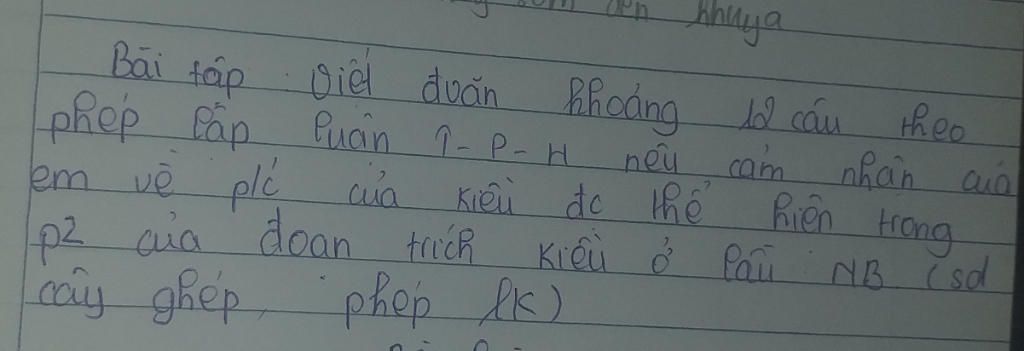 đến khuya
Bài tập: Viết đoạn khoảng 12 câu theo
phép lập luận T-P-H nêu cảm nhận của
em về p/c của Kiều đc thể hiện trong
p2 của đoạn trích Kiều ở lầu NB (sd
câu ghép, phép lk)